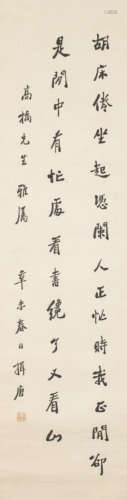 胡床倦坐起憑闌人正忙時我正閒卻
是閒中有忙處看書纔了又看山
嵩橋先生雅屬
辛未春日 揖唐